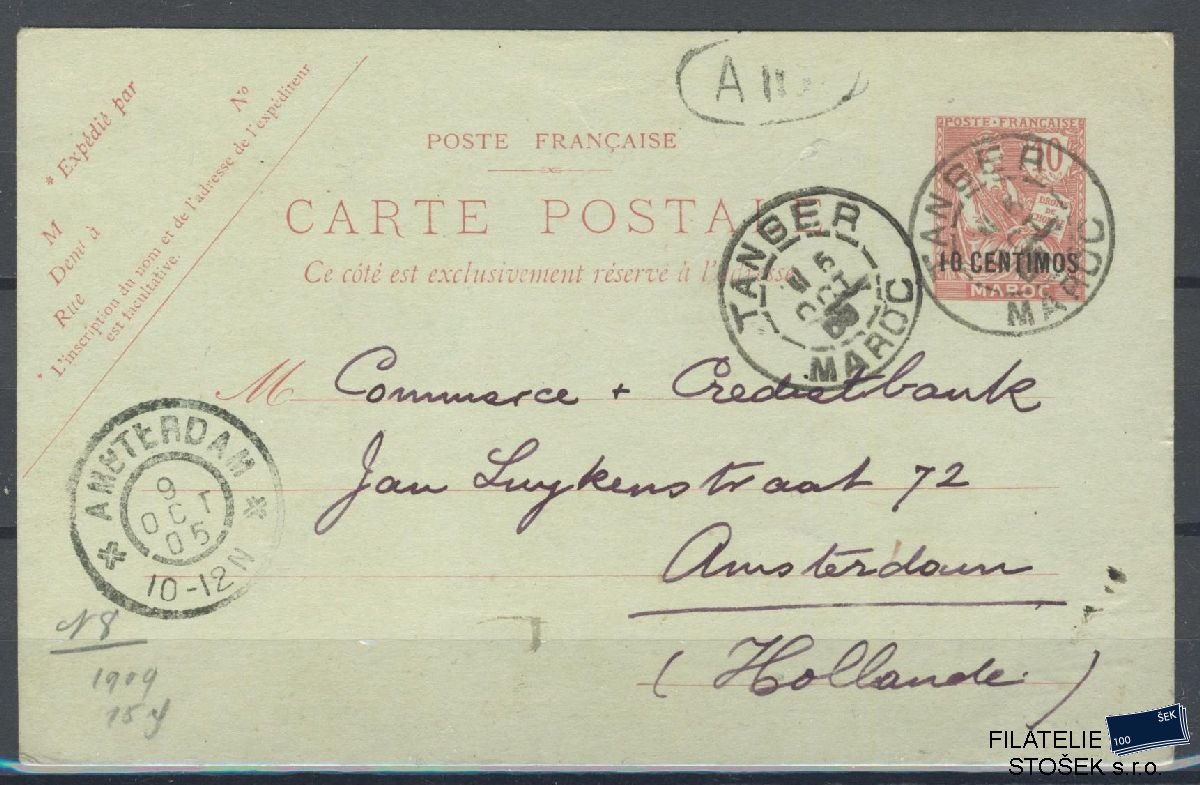 * Expédié par
No
M
Demt à
Rue
* L'inscription du nom et de l'adresse de l'expéditeur
est facultative.
A
POSTE FRANÇAISE
CARTE POSTALE
Ce côté est exclusivement réservé à l'adresse
POSTE • FRANÇAISE
10
10 CENTIMOS
MAROC
TANGER
MAROC
TANGER
5
OCT
MAROC
M Commerce + Credietbank
Jan Luykenstraat 72
Amsterdam
(Hollande)
AMSTERDAM
9
OCT
05
10-12N
N8
1909
15
100 ŠEK
FILATELIE
STOŠEK s.r.o.